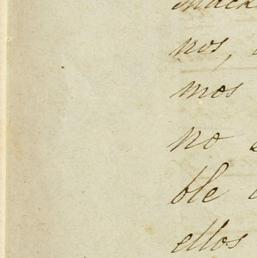 nos,
mos
no
ble
ellos